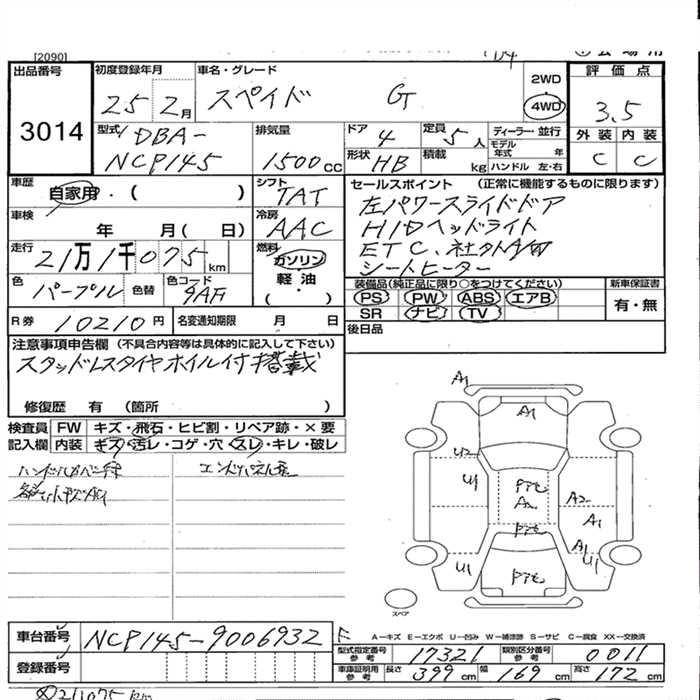 [2090]
出品番号
3014
初度登録年月
25 2月
車名・グレード
スペイド G
2WD
4WD
評価点
3.5
外装 内装
C C
型式
DBA-
NCP145
排気量
1500cc
ドア
4
定員
5人
形状
HB
積載
kg
ディーラー・並行
モデル年式 年
ハンドル 左・右
車歴
自家用・( )
シフト
TAT
車検
年 月( 日)
冷房
AAC
走行
21万1千075km
燃料
ガソリン
軽油
( )
色
パープル
色替
色コード
9AF
セールスポイント (正常に機能するものに限ります)
左パワースライドドア
HIDヘッドライト
ETC、社外AW
シートヒーター
装備品(純正品に限り○をつけてください)
PS PW ABS エアB
SR ナビ TV
新車保証書
有・無
R券 10210円
名変通知期限 月 日
後日品
注意事項申告欄 (不具合内容等は具体的に記入して下さい)
スタッドレスタイヤホイル付搭載
修復歴 有 (箇所 )
検査員 FW キズ・飛石・ヒビ割・リペア跡・×要
記入欄 内装 キズ・汚レ・コゲ・穴・スレ・キレ・破レ
A1
A1
U2
U1
Pit
A2
Pit
A2
A1
A1
U1
U1
Pit
スペア
A−キズ E−エクボ U−凹み W−補修跡 S−サビ C−腐食 XX−交換済
車台番号 NCP145-9006932
登録番号
型式指定番号 参考 17321
類別区分番号 参考 0011
車庫証明用 参考 長さ 399cm 幅 169cm 高さ 172cm
211075km